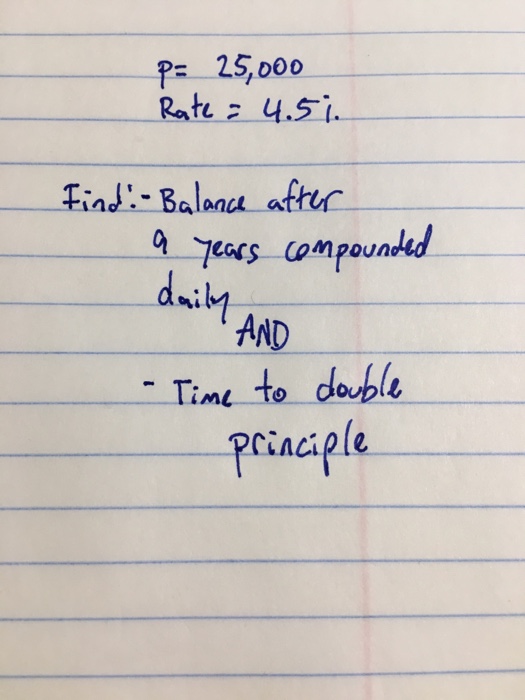 P= 25,000
Rate = 4.5%
Find:- Balance after
9 years compounded
daily
AND
- Time to double
principle